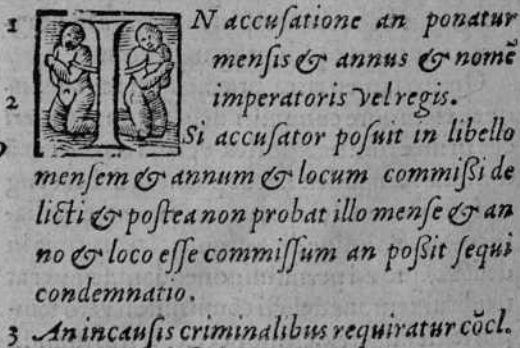 1 IN accuſatione an ponatur
menſis & annus & nomē
2 imperatoris vel regis.
Si accuſator poſuit in libello
menſem & annum & locum commiſsi de
licti & poſtea non probat illo menſe & an
no & loco eſſe commiſſum an poſsit ſequi
condemnatio.
3 An in cauſis criminalibus requiratur cōcl.